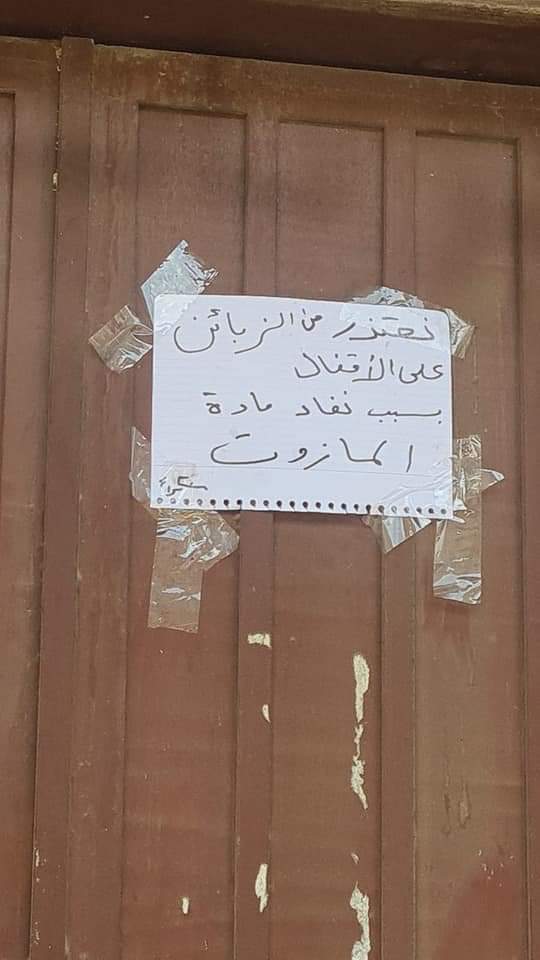 نعتذر من الزبائن
على الأقفال
بسبب نفاد مادة
المازوت
شكراً